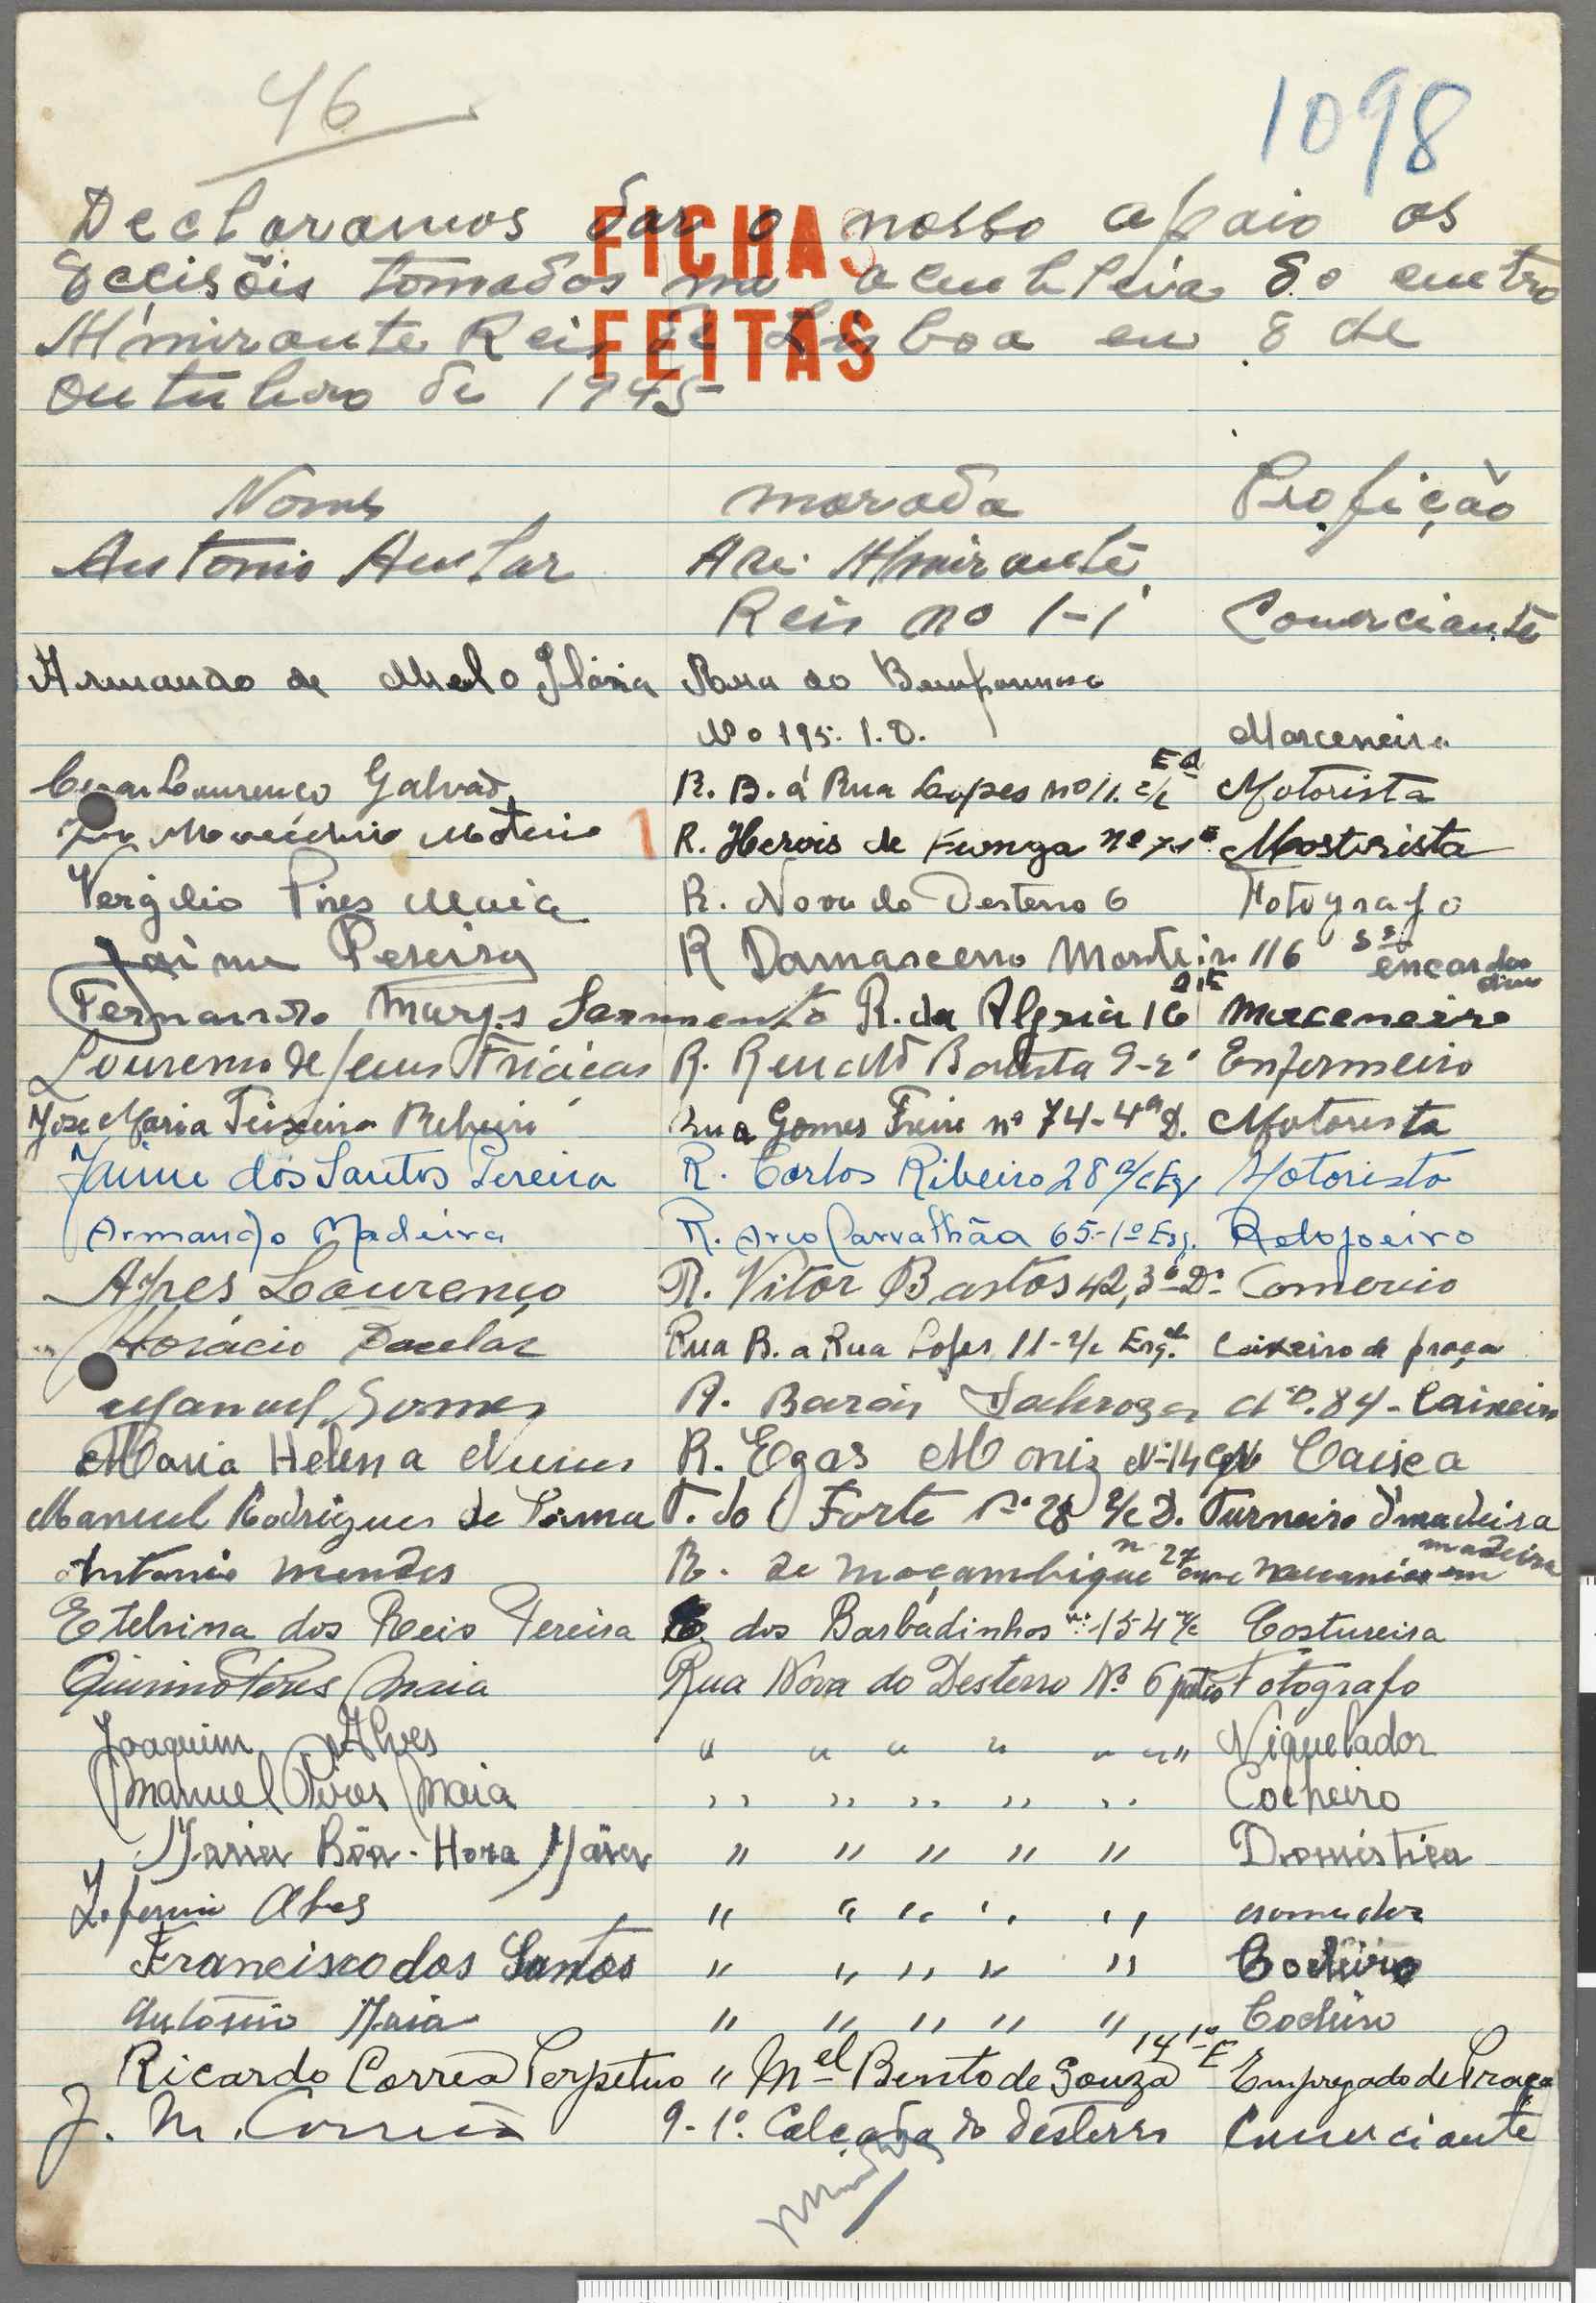 46
1098
FICHAS
FEITAS
Declaramos dar o nosso apoio as
decisõis tomados na do centro
Almirante Reis de Lisboa em 8 de
Outubro de 1945
Nomes morada Profição
Antonio Almirante
Reis nº 1-1 Comerciante
Armando de Melo Rua do Bemformoso
Nº 195. 1. D. Marceneiro
Lourenço Galvão R. B. á Rua Lopes nº 11. r/c Eq Motorista
R. Herois de Kionga nº Mostorista
Vergilio Pires Maia R. Nova do Desterro 6 Fotografo
Jaime Pereira R Damasceno Monteiro 116
Fernando Sarmento R. da Algria 16 Marceneiro
Lourenço de Jesus R. 9-2º Enfermeiro
Jose Maria Teixeira Rebeiro Rua Gomes Freire nº 74-4º D. Motorista
Jaime dos Santos Pereira R. Carlos Ribeiro 28 r/c Eq Motorista
Armando Madeira R. Arco Carvalhão 65-1º Esq. Relojoeiro
Lourenço R. Vitor Bastos 42, 3º D. Comercio
Horácio Rua B. a Rua Lopes 11-r/c Esq. Caixeiro de praça
Manuel Gomes R. Barão Sabrosa Nº. 84 - Caixeiro
Maria Helena Nunes R. Egas Moniz Nº 14 Caixa
Manuel Rodrigues de T. do Forte nº 28 r/c D. Turneiro d'madeira
Antonio Mendes R. de Moçambique nº 27 mecanico em madeira
Etelvina dos Reis Pereira dos Barbadinhos nº 154 r/c Costureira
Quirino Pires Maia Rua Nova do Desterro Nº 6 patio Fotografo
Joaquim Alves " " " " " " Niquelador
Manuel Pires Maia " " " " " Cocheiro
Maria Bôa-Hora " " " " " Doméstica
Alves " " " " "
Francisco dos Santos " " " " " Cocheiro
António Maia " " " " " Cocheiro
Ricardo Corrêa Perpetuo " Mel Bento de Souza 14 1º E Empregado de Praça
J. M. Correia 9-1º. Calçada do Desterro Comerciante